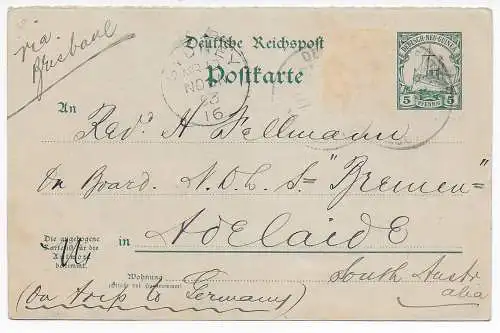 via
Brisbane
Deutsche Reichspost
Postkarte
DEUTSCH-NEU-GUINEA
5 PFENNIG 5
An
Revd. H. Fellmann
On Board. N.D.L. S. "Bremen"
Die angebogene
Karte ist für die
Antwort
bestimmt.
in ADELAIDE
Wohnung
(Straße und Hausnummer)
South Austr
alia
(On trip to Germany)